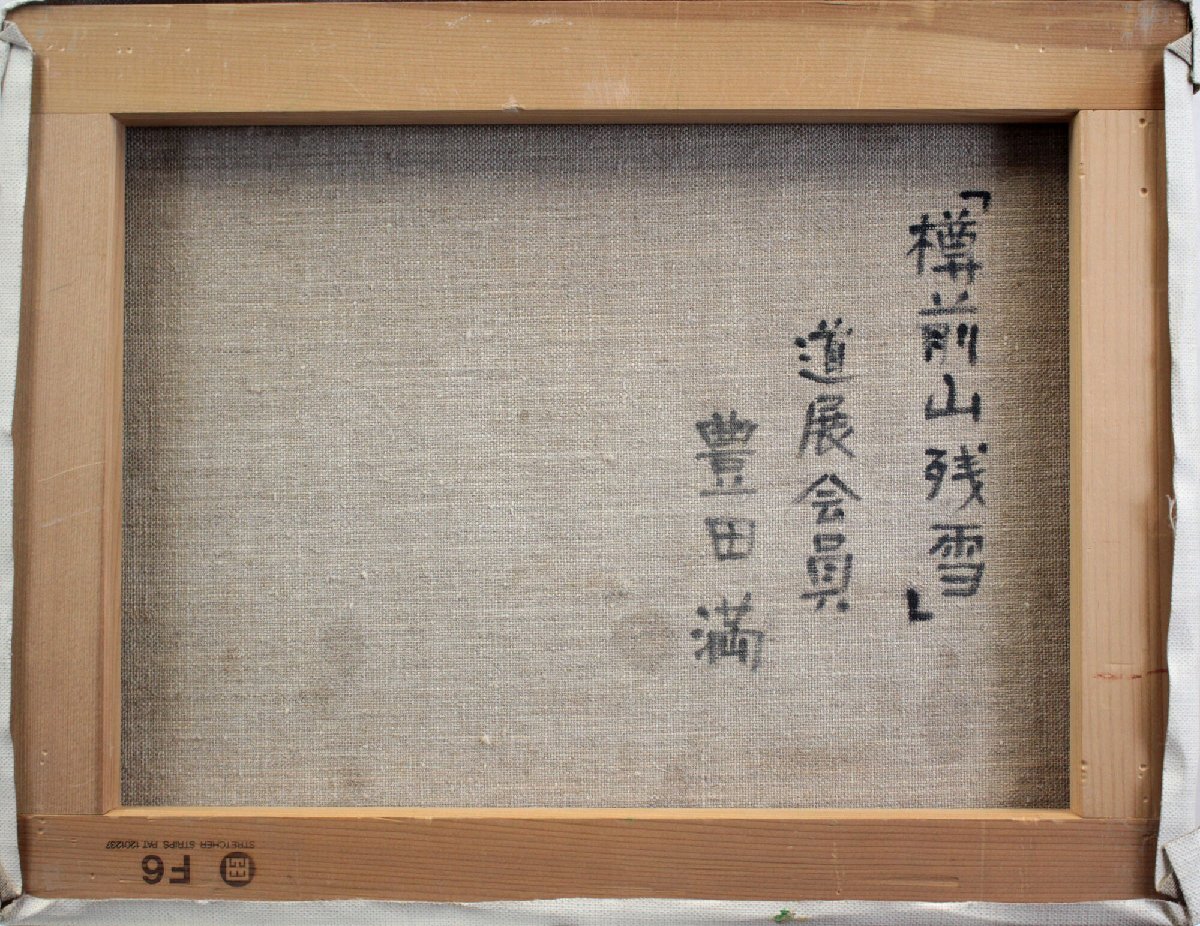 「樽前山残雪」
道展会員
豊田満
STRETCHER STRIPS PAT 1201237
F6